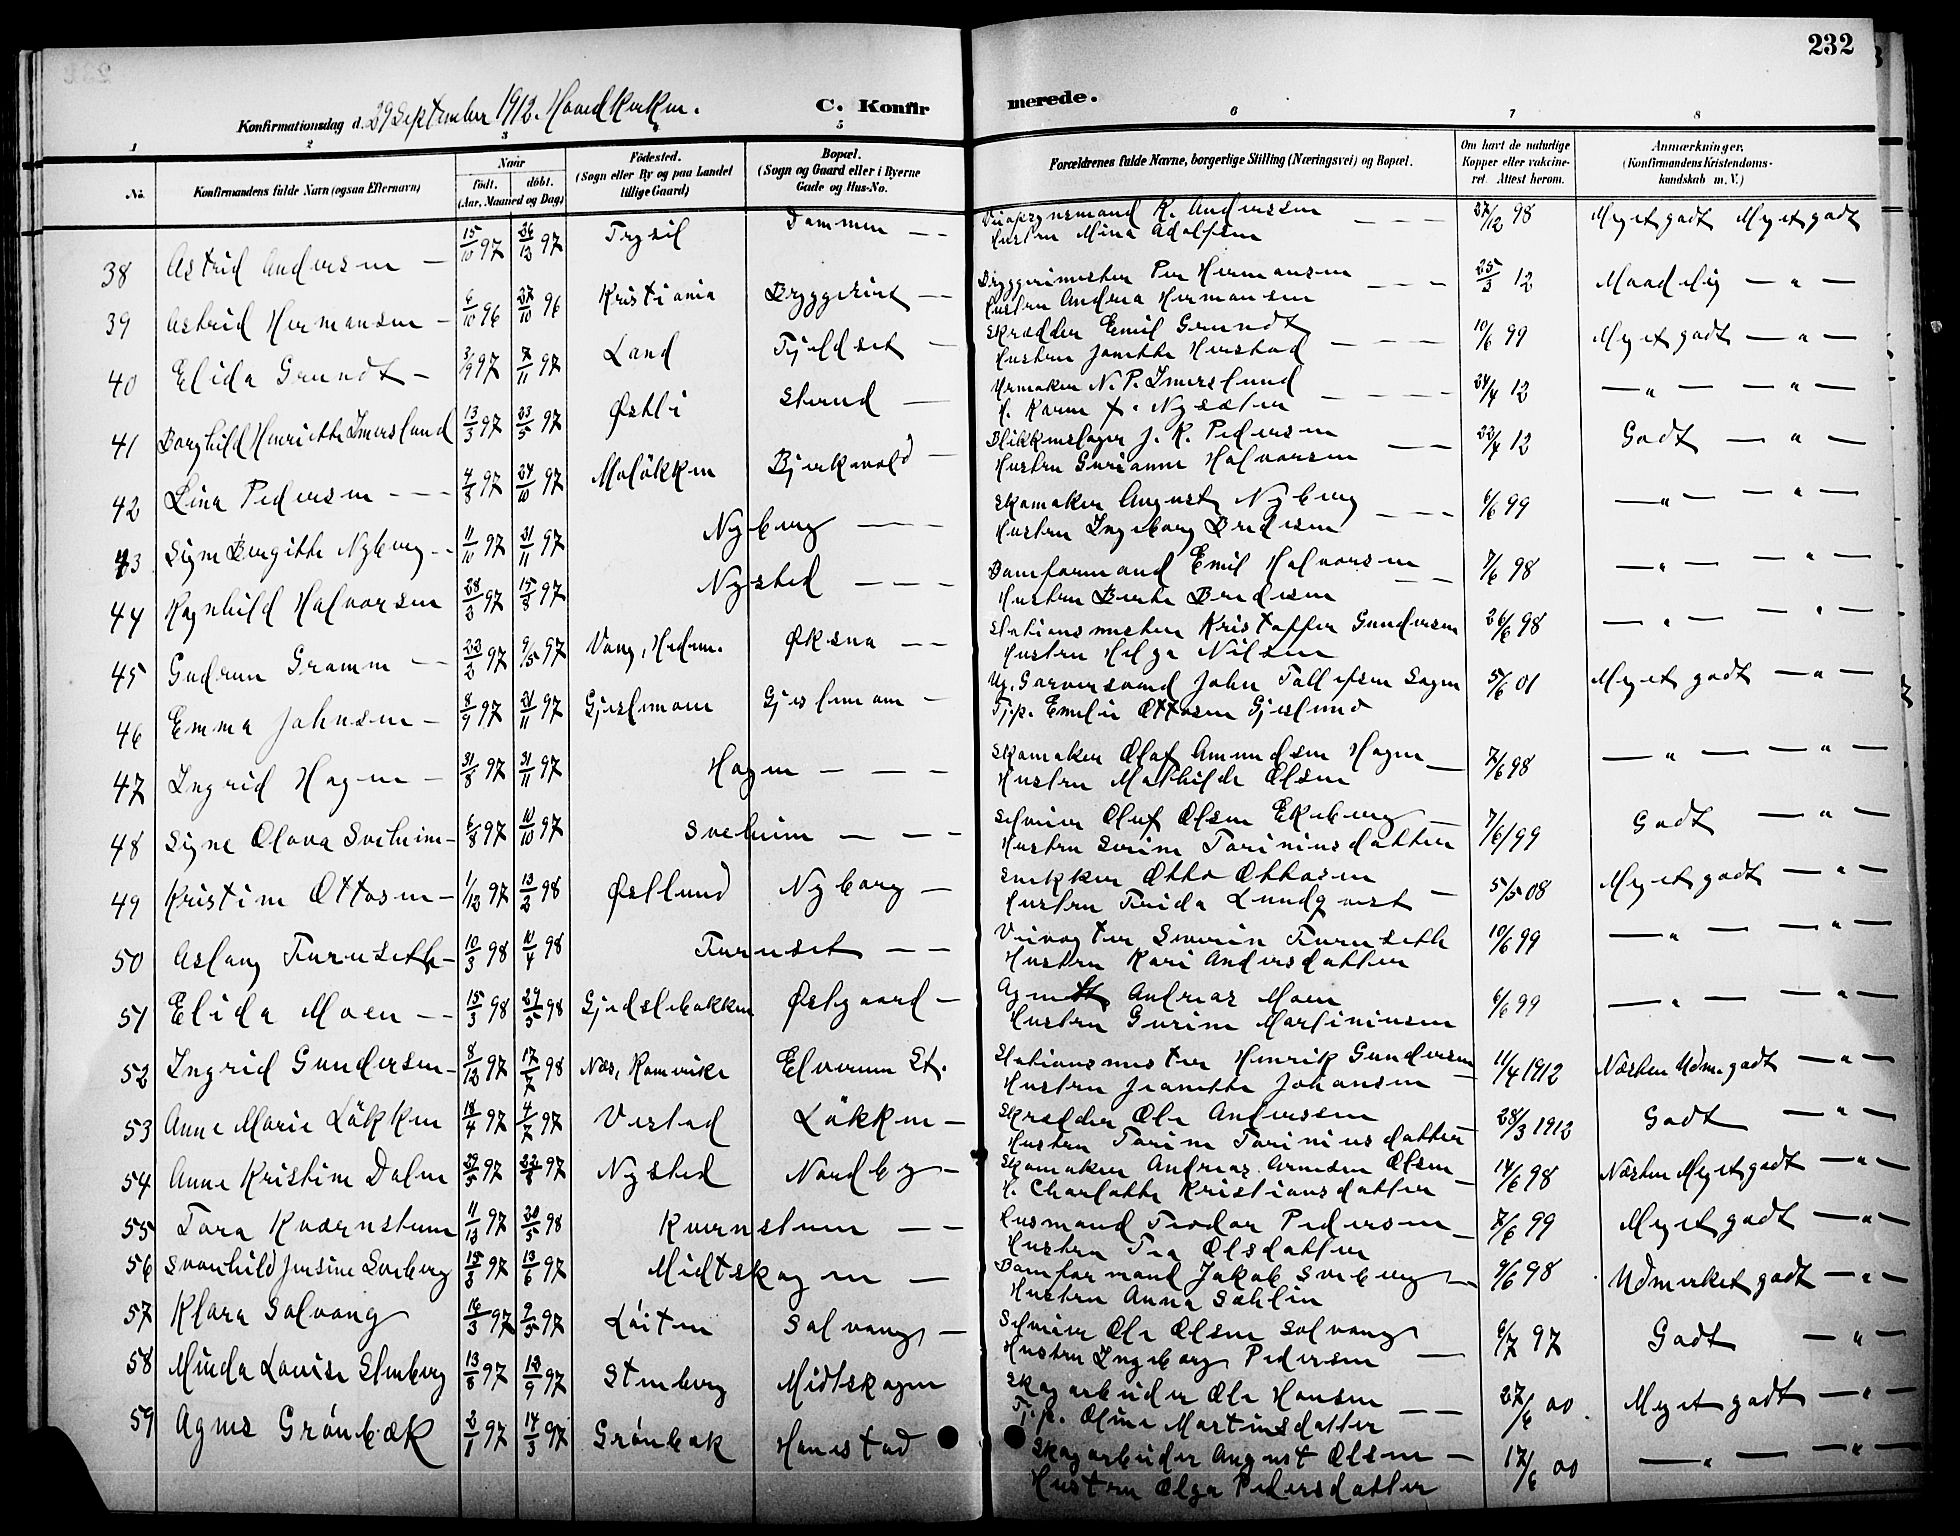 232
Konfirmationsdag d. 29 September 1912. Hovedkirken.
C. Konfirmerede.
1 2 3 4 5 6 7 8
No. Konfirmandens fulde Navn (ogsaa Efternavn) Naar født. døbt. (Aar, Maaned og Dag) Fødested. (Sogn eller By og paa Landet tillige Gaard) Bopæl. (Sogn og Gaard eller i Byerne Gade og Hus-No. Forældrenes fulde Navne, borgerlige Stilling (Næringsvei) og Bopæl. Om havt de naturlige Kopper eller vaccineret. Attest herom. Anmærkninger. (Konfirmandens Kristendomskundskab m. V.)
38 Astrid Andersen — 15/10 97 26/12 97 Trysil Dammen — — K. Anderssen — — — 27/12 98 Meget godt Meget godt
Hustru Mina Adolfsen
39 Astrid Hermansen — 6/10 96 27/10 96 Kristiania Bryggeriet — — Bryggerimester Per Hermansen — — — 25/3 12 Maadelig — " —
Hustru Andrea Hermansen
40 Elida Grundt — 3/9 97 7/11 97 Land Fjeldset — Skrædder Emil Grundt — — — 10/6 99 Meget godt — " —
Hustru Janethe Herstad
41 Borghild Henriette Imerslund 13/3 97 23/5 97 Østli Sterud — Urmaker N. P. Imerslund — — — — 24/4 12 — " — — " —
H. Karen f. Nysæter
42 Lina Pedersen — — — 4/8 97 24/10 97 Moløkken Bjerkevold — Blikkenslager J. K. Pedersen — — 23/4 12 Godt — " —
Hustru Gurianne Halvorsen
43 Signe Birgithe Nyberg — 11/10 97 21/11 97 Nyberg — — — Skomaker August Nyberg — — — 6/6 99 — " — — " —
Hustru Ingeborg Bredesen
44 Ragnhild Halvorsen 28/2 97 15/8 97 Nysted — — — Damformand Emil Halvorsen — — 7/6 98 — " — — " —
Hustru Berte Bredesen
45 Gudrun Gramm — — 23/2 97 9/5 97 Vang, Hedm. Øksna — — Stationsmester Kristoffer Gundersen 26/6 98 — " — — " —
Hustru Helga Nilsen
46 Emma Johnsen — 8/9 97 21/11 97 Gjeslemoen Gjeslemoen — Ug. Garversvend John Tollefsen Sagen 5/6 01 Meget godt — " —
Tj.p. Emilie Ottosen Gjeslund
47 Ingrid Hagen — 31/8 97 21/11 97 Hagen — — — Skomaker Olaf Amundsen Hagen — 7/6 98 — " — — " —
Hustru Mathilde Olsen
48 Signe Olava Sveheim — 6/8 97 10/10 97 Sveheim — — — Selveier Oluf Olsen Ekeberg — 7/6 99 Godt — " —
Hustru Sverine Toriniusdatter
49 Kristine Ottosen — 1/12 97 13/2 98 Østlund Nyborg — Snekker Otto Ottosen — 5/5 08 Meget godt — " —
Hustru Frida Lundqvist
50 Aslaug Furuseth — 10/3 98 10/4 98 Furuset — — Veivogter Severin Furuseth 10/6 99 — " — — " —
Hustru Kari Andersdatter
51 Elida Moen — — 15/3 98 29/5 98 Gjedslebakken Østgaard — Agent Andreas Moen 6/6 99 — " — — " —
Hustru Gurine Martiniusen
52 Ingrid Gundersen — 8/12 97 17/7 98 Næs, Romerike Elverum St. Stationsmester Henrik Gundersen 11/4 1912 Næsten Udm. godt — " —
Hustru Jeanette Johansen —
53 Anne Marie Løkken 18/4 97 4/7 97 Vestad Løkken — Skrædder Ole Anderssen 28/3 1912 Godt — " —
Hustru Torine Toriniusdatter
54 Anne Kristine Dalen 29/5 97 22/8 97 Nysted Nordby — Skomaker Andreas Arnesen Olsen 14/6 98 Næsten Meget godt — " —
H. Charlotte Kristiansdatter —
55 Tora Kværnstuen 11/12 97 20/5 98 Kvernstuen — — Husmand Teodor Pedersen — 7/6 99 Meget godt — " —
Hustru Tea Olsdatter
56 Svanhild Jensine Soeberg 15/3 97 13/6 97 Midtskogen — Damformand Jakob Soeberg — 9/6 98 Udmerket godt — " —
Hustru Anna Sæhlin
57 Klara Solvang 16/3 97 9/5 97 Løiten Solvang — Selveier Ole Olsen Solvang 6/7 97 Godt — " —
Hustru Ingeborg Pedersen —
58 Minda Lovise Stenberg 13/8 97 12/9 97 Stenberg Midtskogen Skogarbeider Ole Hansen — — 27/6 00 Meget godt — " —
Tj.p. Oline Martinsdatter
59 Agnes Grønbæk 2/1 97 14/3 97 Grønbæk Hanestad Skogarbeider August Olsen — 17/6 00 — " — — " —
Hustru Olga Pedersdatter